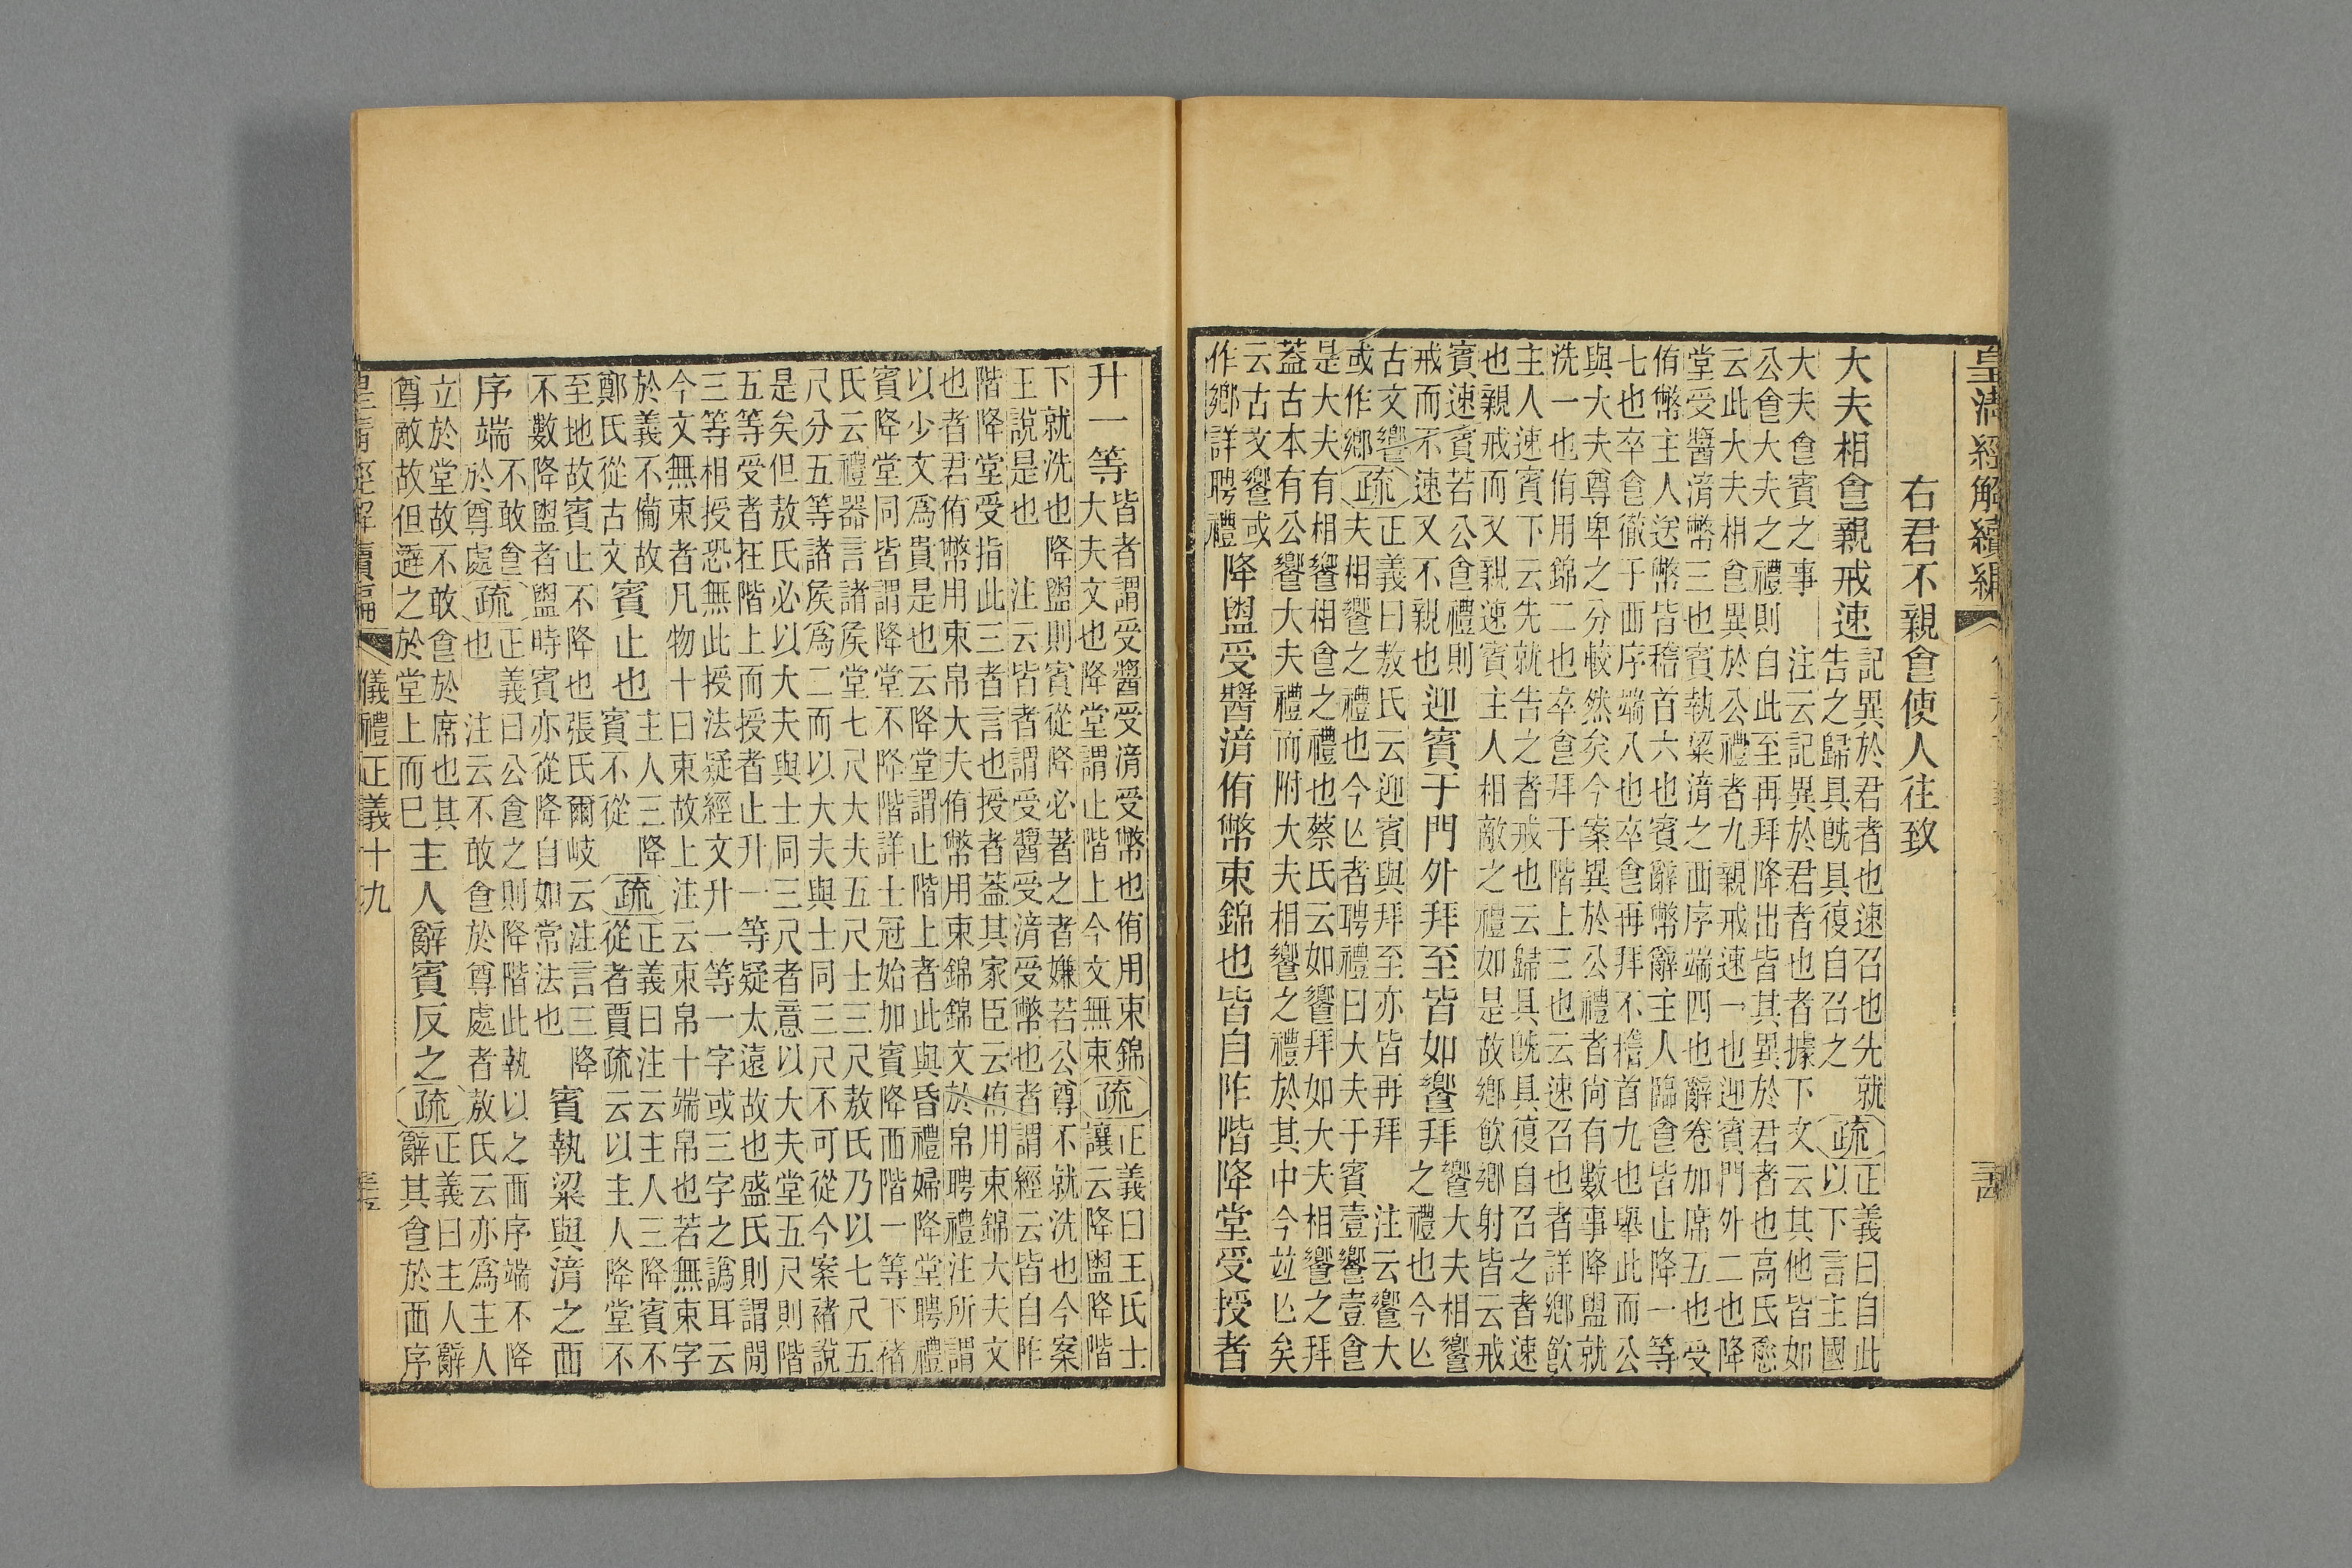 皇清經解續編
右君不親食使人往致
大夫相食親戒速
記異於君者也速召也先就
告之歸具旣具復自召之
疏
正義曰自此
以下言主國
大夫食賓之事　注云記異於君者也者據下文云其他皆如
公食大夫之禮則自此至再拜降出皆其異於君者也高氏愈
云此大夫相食異於公禮者九親戒速一也迎賓門外二也降
堂受醬湆幣三也賓執粱湆之西序端四也辭卷加席五也受
侑幣主人送幣皆稽首六也賓辭幣辭主人臨食皆止降一等
七也卒食徹于西序端八也卒食再拜不稽首九也舉此而公
與大夫尊卑之分較然矣今案異於公禮者尚有數事降盥就
洗一也侑用錦二也卒食拜于階上三也云速召也者詳鄉飲
主人速賓下云先就告之者戒也云歸具旣具復自召之者速
也親戒而又親速賓主人相敵之禮如是故鄉飲鄉射皆云戒
賓速賓若公食禮則
戒而不速又不親也
迎賓于門外拜至皆如饗拜
饗大夫相饗
之禮也今亾
古文饗
或作鄉
疏
正義曰敖氏云迎賓與拜至亦皆再拜　注云饗大
夫相饗之禮也今亾者聘禮曰大夫于賓壹饗壹食
是大夫有相饗相食之禮也蔡氏云如饗拜如大夫相饗之拜
蓋古本有公饗大夫禮而附大夫相饗之禮於其中今竝亾矣
云古文饗或
作鄉詳聘禮
降盥受醬湆侑幣束錦也皆自阼階降堂受授者
升一等
皆者謂受醬受湆受幣也侑用束錦
大夫文也降堂謂止階上今文無束
疏
正義曰王氏士
讓云降盥降階
下就洗也降盥則賓從降必著之者嫌若公尊不就洗也今案
王說是也　注云皆者謂受醬受湆受幣也者謂經云皆自阼
階降堂受指此三者言也授者蓋其家臣云侑用束錦大夫文
也者君侑幣用束帛大夫侑幣用束錦錦文於帛聘禮注所謂
以少文爲貴是也云降堂謂止階上者此與昏禮婦降堂聘禮
賓降堂同皆謂降堂不降階詳士冠始加賓降西階一等下褚
氏云禮器言諸侯堂七尺大夫五尺士三尺敖氏乃以七尺五
尺分五等諸侯爲二而以大夫與士同三尺不可從今案褚說
是矣但敖氏必以大夫與士同三尺者意以大夫堂五尺則階
五等受者在階上而授者止升一等疑太遠故也盛氏則謂閒
三等相授恐無此授法疑經文升一等一字或三字之譌耳云
今文無束者凡物十曰束故上注云束帛十端帛也若無束字
於義不備故
鄭氏從古文
賓止也
主人三降
賓不從
疏
正義曰注云主人三降賓不
從者賈疏云以主人降堂不
至地故賓止不降也張氏爾岐云注言三降
不數降盥者盥時賓亦從降自如常法也
賓執粱與湆之西
序端
不敢食
於尊處
疏
正義曰公食之則降階此執以之西序端不降
也　注云不敢食於尊處者敖氏云亦爲主人
立於堂故不敢食於席也其
尊敵故但避之於堂上而已
主人辭賓反之
疏
正義曰主人辭
辭其食於西序
皇清經解續編
儀禮正義十九